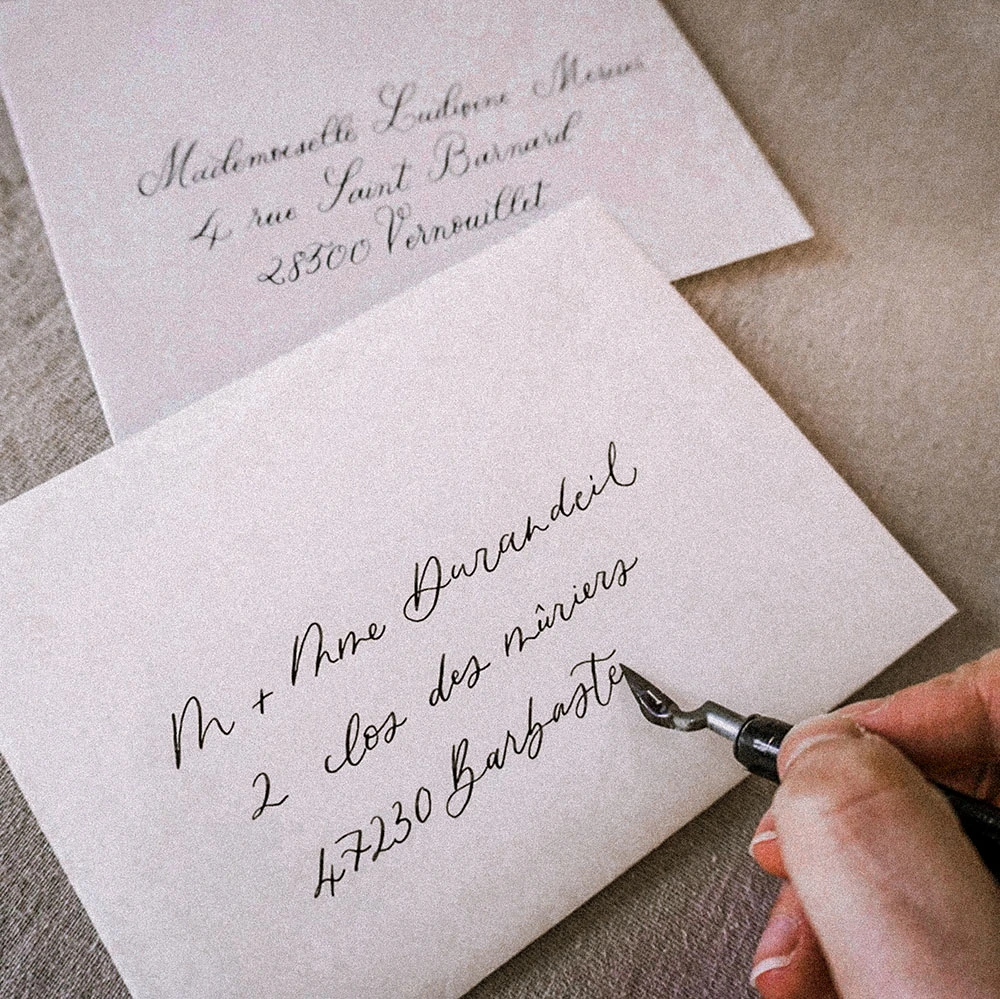 Mademoiselle Ludivine Mercier
4 rue Saint Barnard
28500 Vernouillet
M + Mme Durandeil
2 clos des mûriers
47230 Barbaste